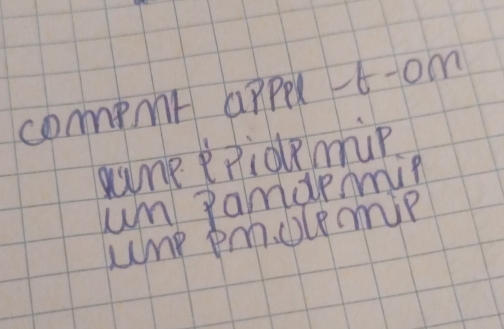 comment appel -t-on
une épidemie
un pandemie
une endemie